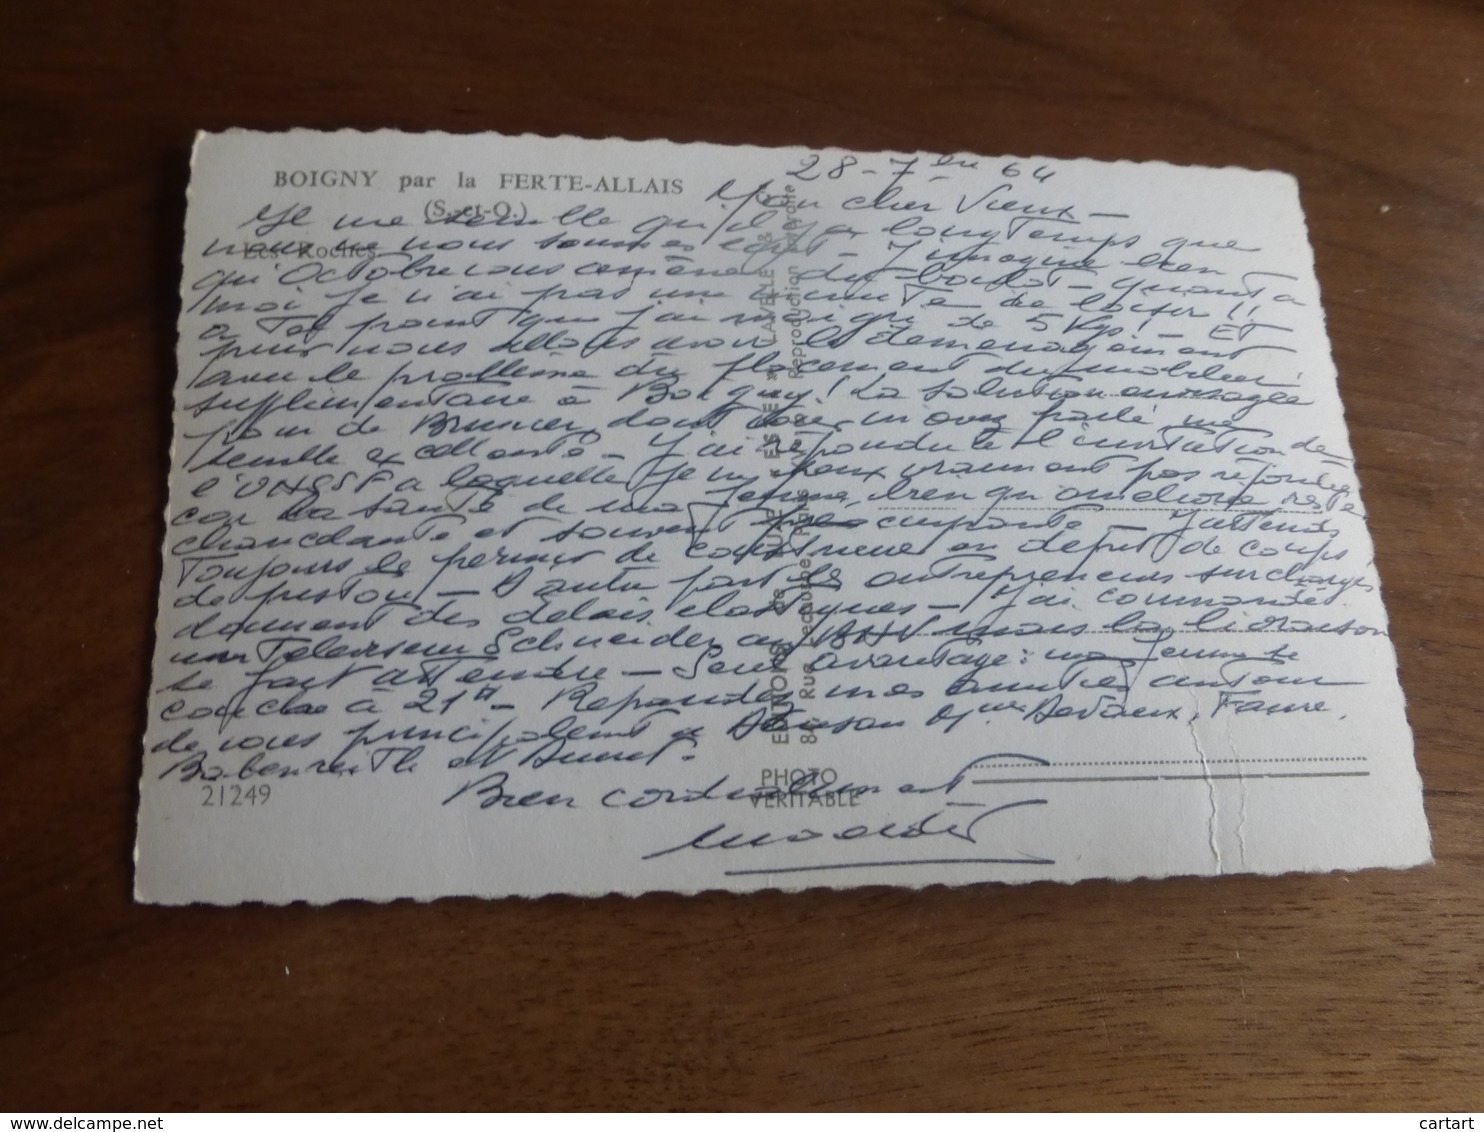 BOIGNY par la FERTE-ALLAIS
(S.-et-O.)
Les Roches
28-7 64
Mon cher Vieux -
Je me semble qu'il y a longtemps que
nous ne nous sommes écrit - J'imagine bien
qu'Octobre vous amènera du boulot - quant à
moi je n'ai pas une minute de loisir !!
à tel point que j'ai maigri de 5 Kgs ! - Et
puis nous allons avoir le déménagement
avec le problème du placement du mobilier
supplémentaire à Boigny ! La solution envisagée
pour de Brunier dont vous m'avez parlé me
semble excellente - J'ai répondu à l'invitation de
l'UNSSF à laquelle je ne peux vraiment pas répondre
car la santé de ma femme, bien qu'améliorée reste
chancelante et souvent préoccupante - J'attends
toujours le permis de construire en dépit de coups
de piston - D'autre part les entrepreneurs surchargés
donnent des délais élastiques - J'ai commandé
un téléviseur Schneider au BHV mais la livraison
se fait attendre - Seul avantage : ma femme se
couche à 21h - Répandez mes amitiés autour
de vous principalement à Devaux, Faure,
et
Bien cordialement
21249
EDITIONS de LUXE « ESTEL » LAVELLE & C
84, Rue Lecourbe, Paris Reproduction interdite
PHOTO
VERITABLE